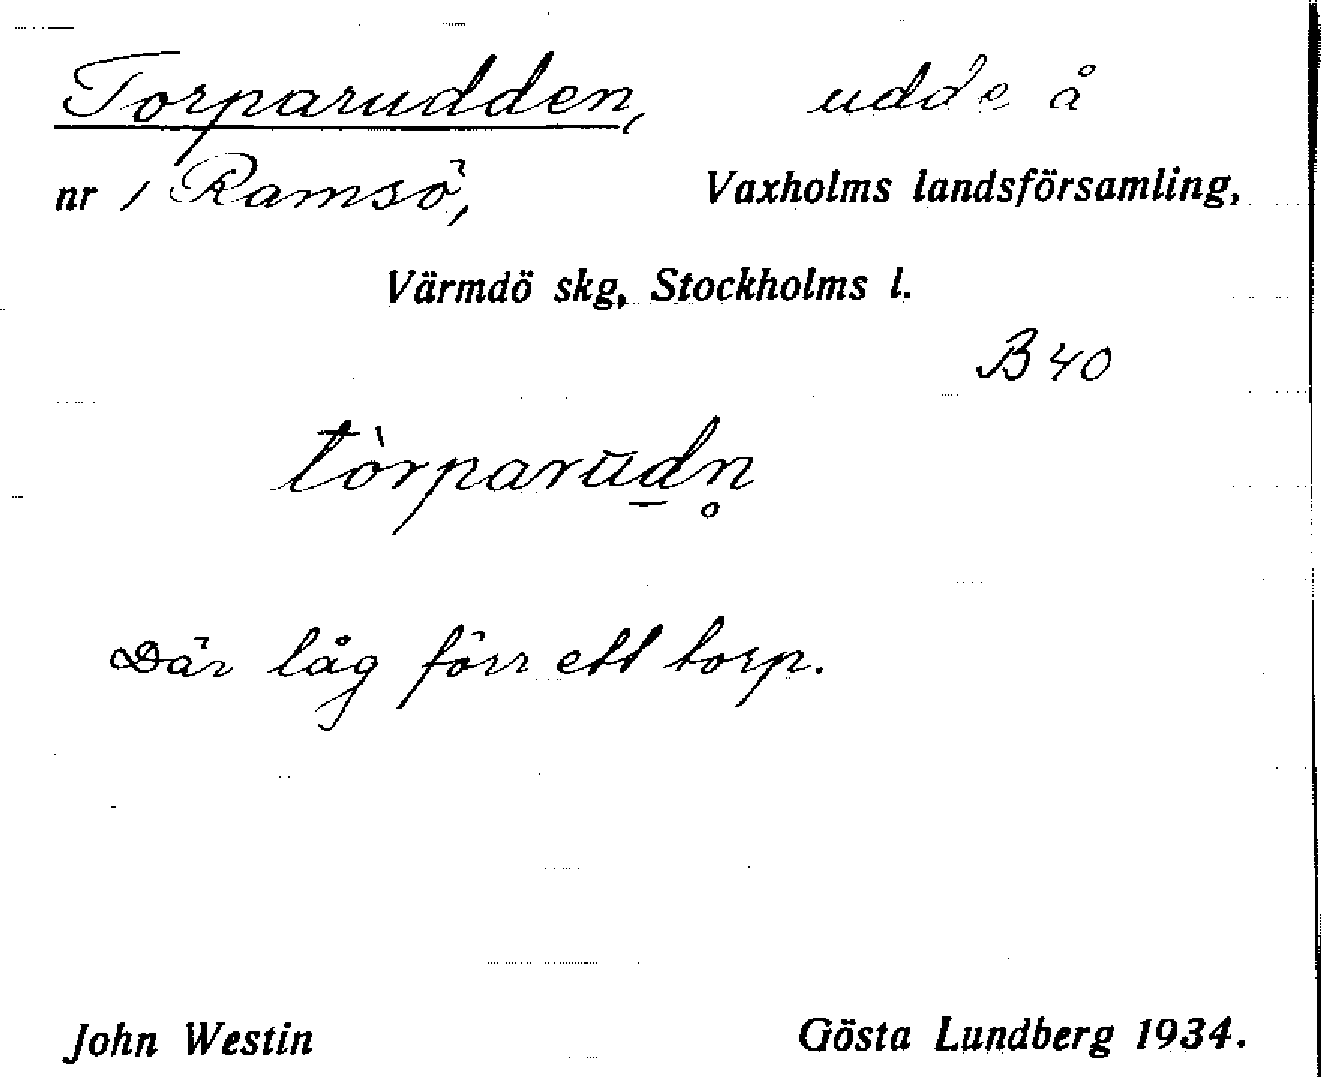 Torparudden, udde å
nr 1 Ramsö, Vaxholms landsförsamling,
Värmdö skg, Stockholms l.
B 40
tòrparūd̲n̥
Där låg förr ett torp.
John Westin Gösta Lundberg 1934.